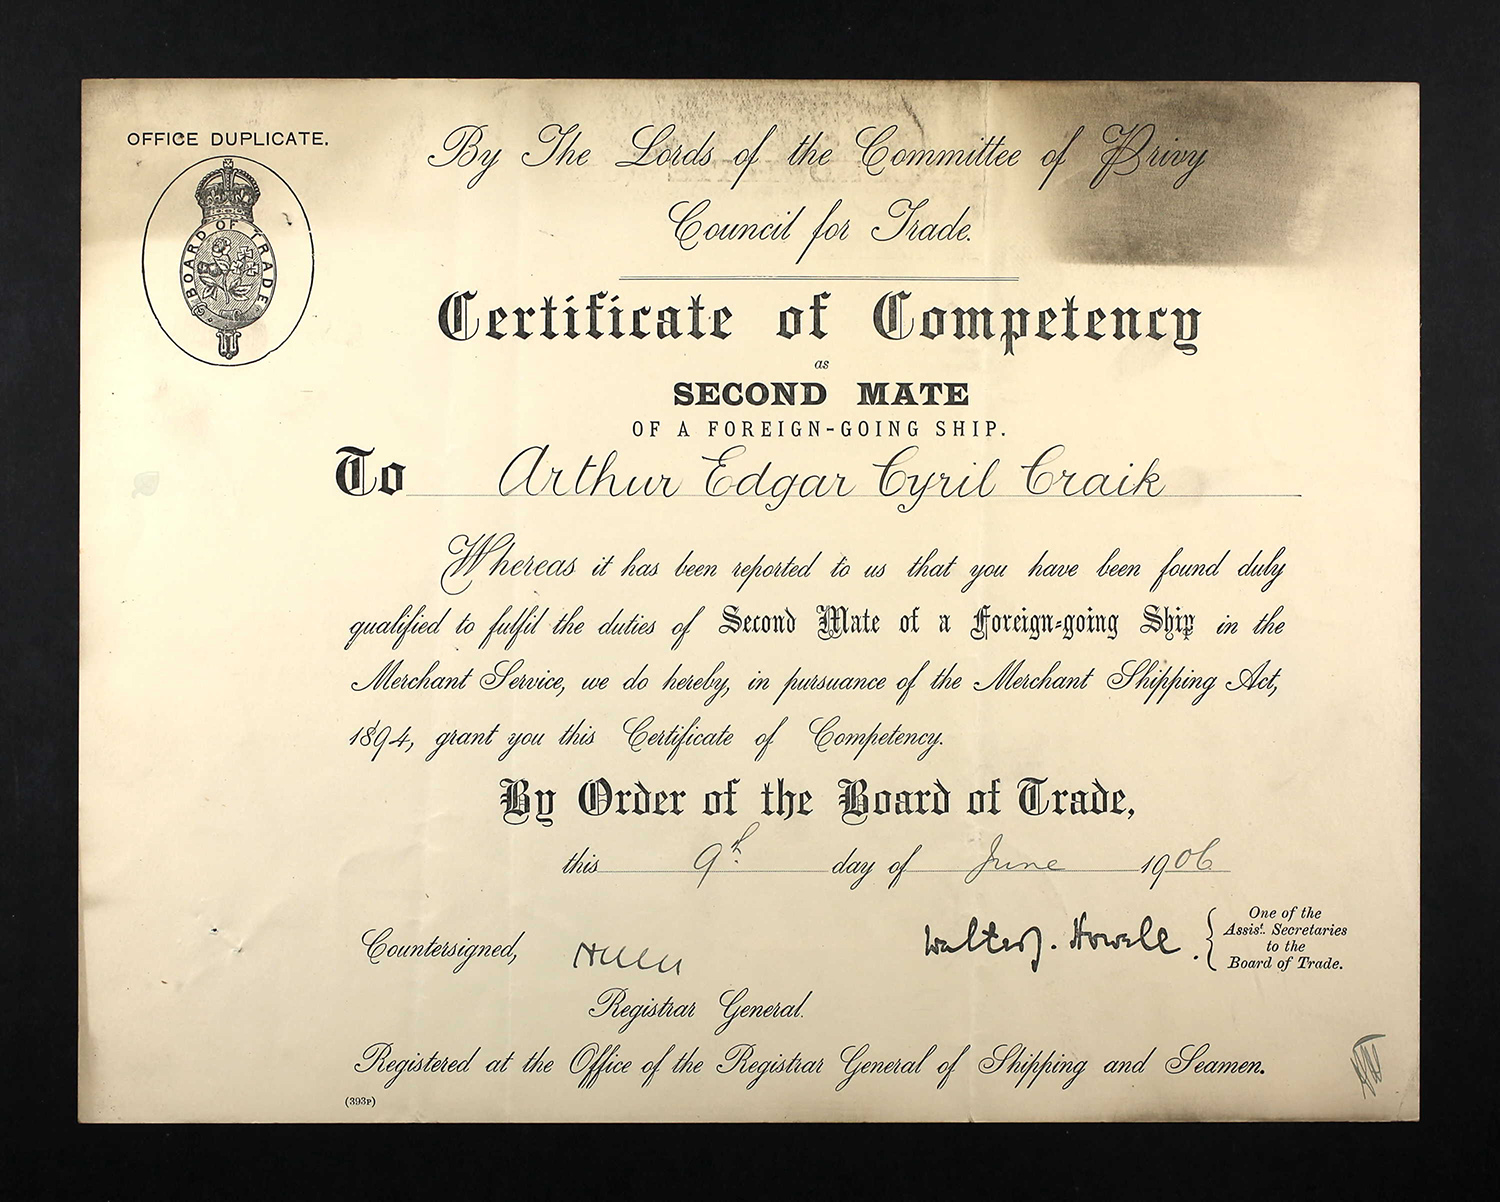 OFFICE DUPLICATE.
BOARD OF TRADE
By The Lords of the Committee of Privy
Council for Trade.
Certificate of Competency
as
SECOND MATE
OF A FOREIGN-GOING SHIP.
To Arthur Edgar Cyril Craik
Whereas it has been reported to us that you have been found duly
qualified to fulfil the duties of Second Mate of a Foreign-going Ship in the
Merchant Service, we do hereby, in pursuance of the Merchant Shipping Act,
1894, grant you this Certificate of Competency.
By Order of the Board of Trade,
this 9th. day of June 1906
Countersigned,
Walter J. Howell.
One of the
Assist. Secretaries
to the
Board of Trade.
Registrar General.
Registered at the Office of the Registrar General of Shipping and Seamen.
(393P)